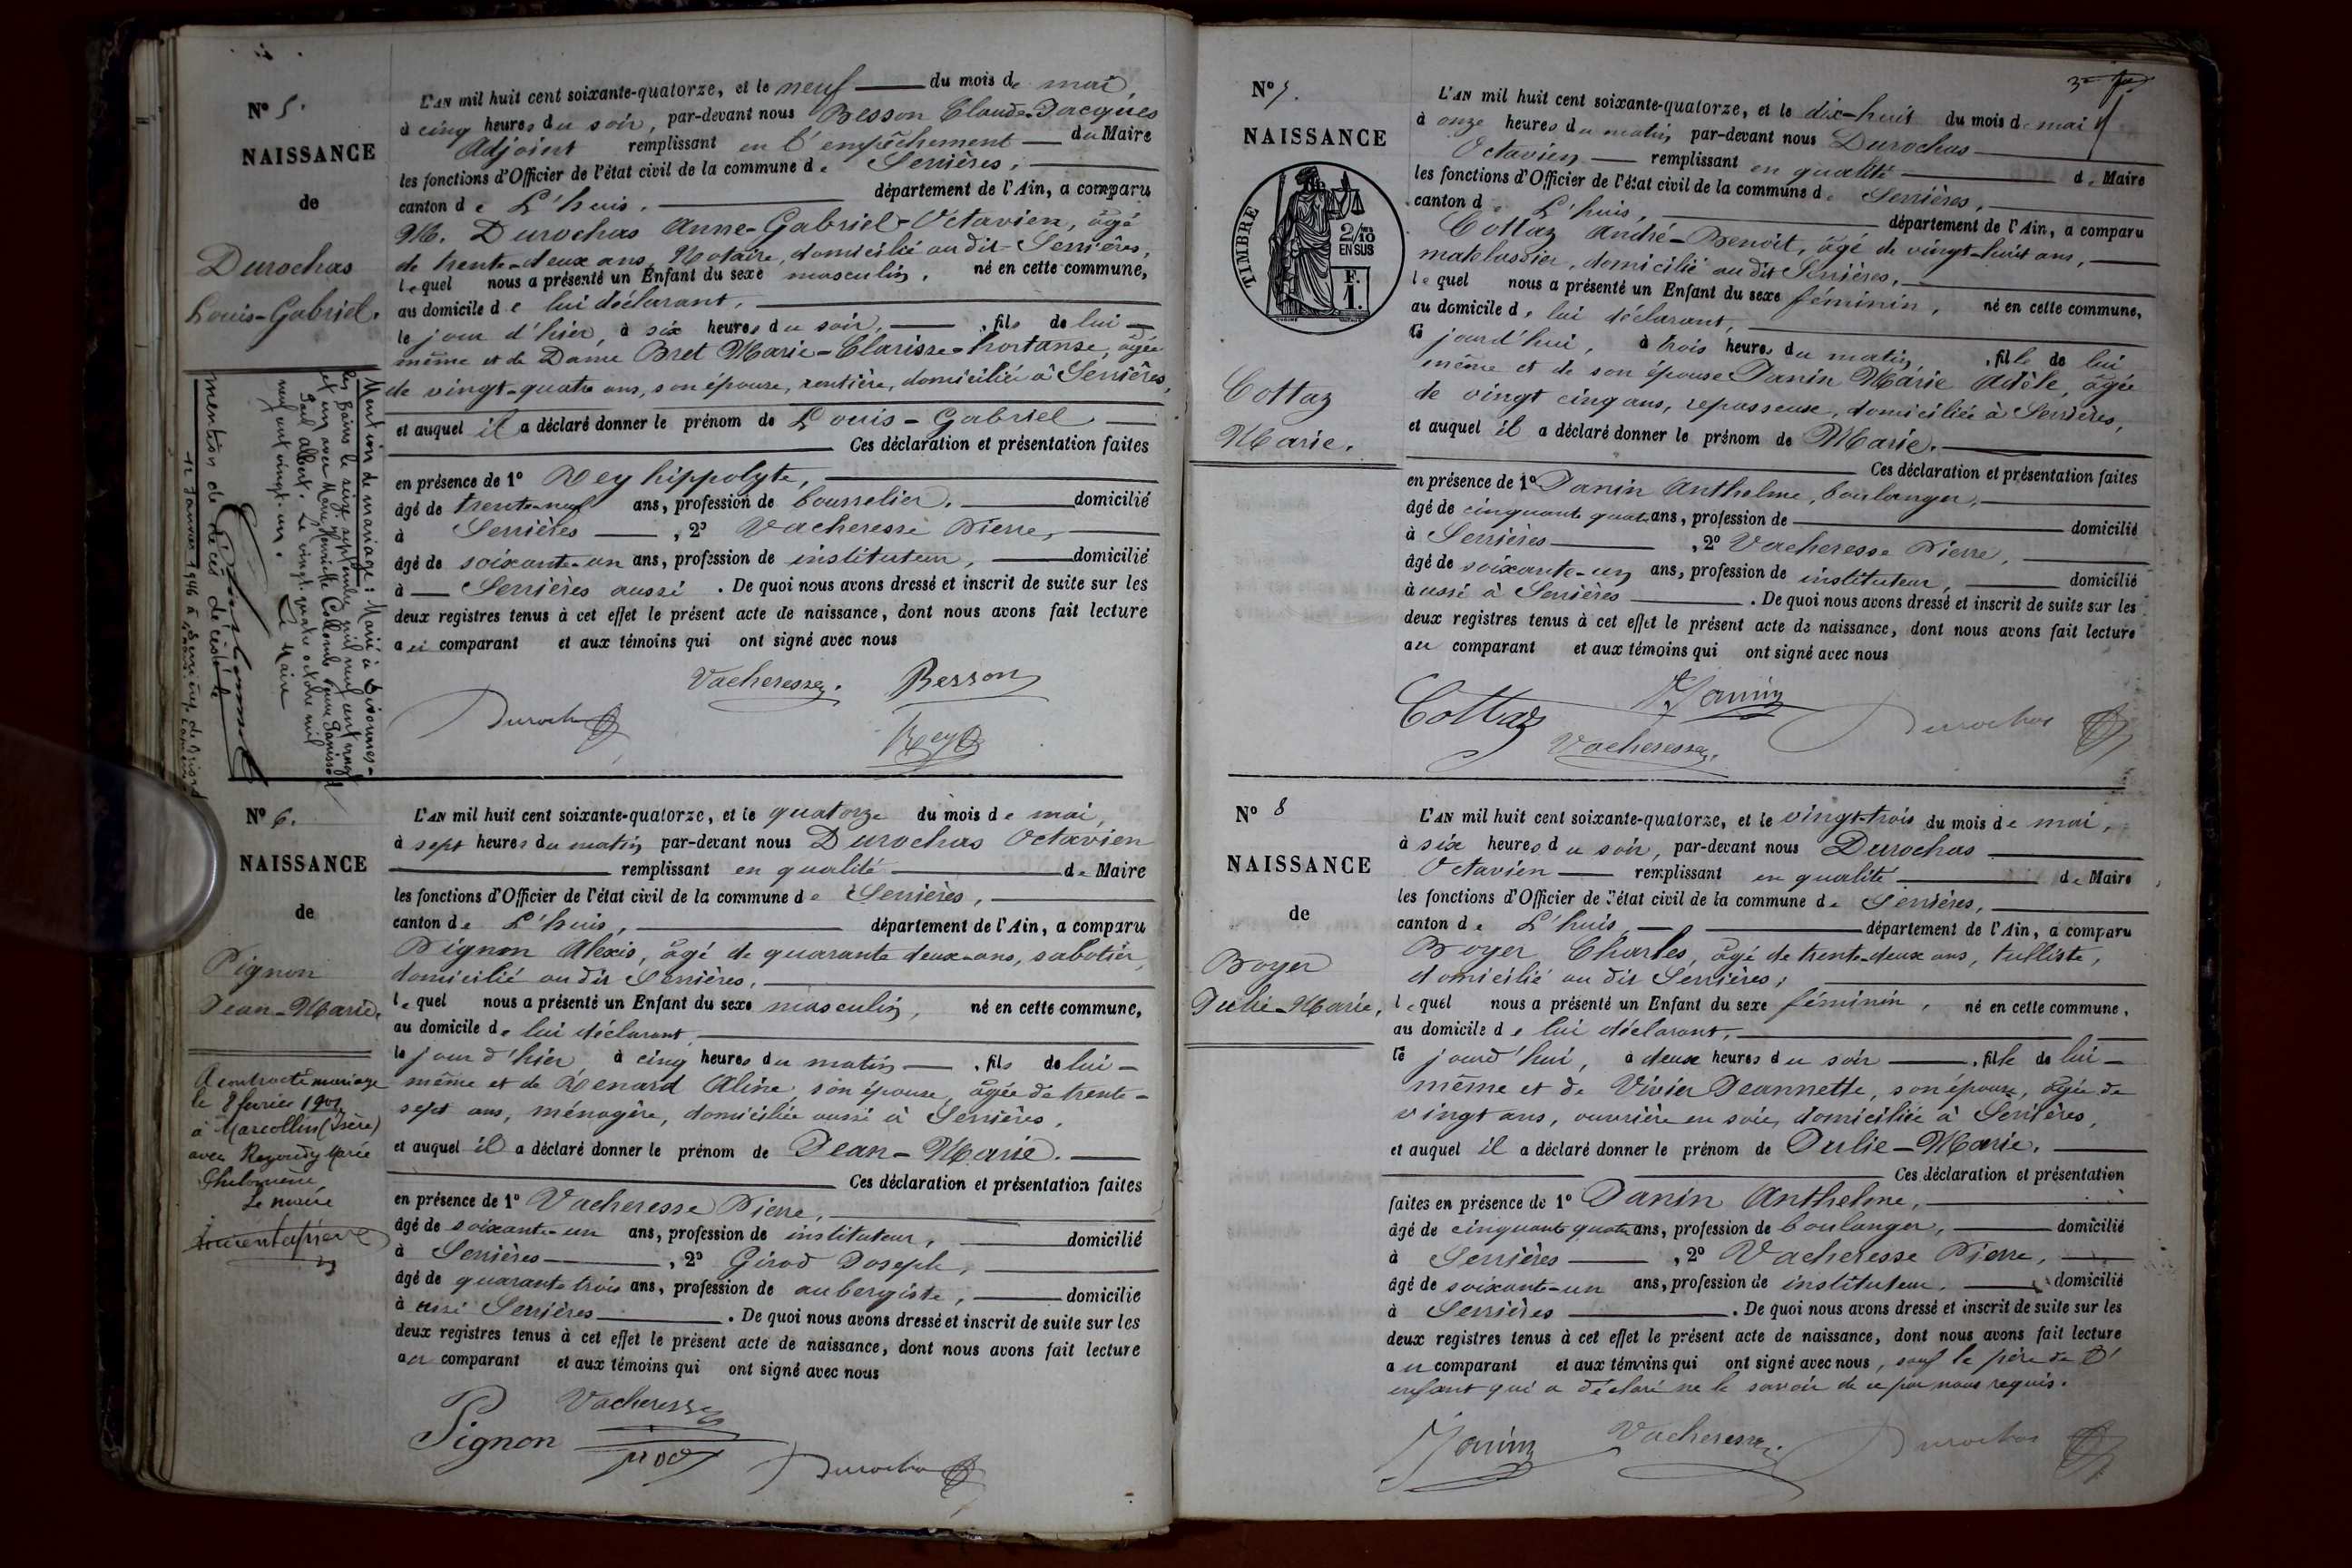 N° 5.
NAISSANCE
de
Durochas
Louis-Gabriel.
L'AN mil huit cent soixante-quatorze, et le neuf du mois de mai
à cinq heures du soir, par-devant nous Besson Claude-Jacques
Adjoint remplissant en l'empêchement du Maire
les fonctions d'Officier de l'état civil de la commune de Serrières,
canton de L'huis, département de l'Ain, a comparu
M. Durochas Anne-Gabriel-Octavien, âgé
de trente-deux ans, Notaire, domicilié au dit Serrières,
lequel nous a présenté un Enfant du sexe masculin, né en cette commune,
au domicile de lui déclarant,
le jour d'hier, à six heures du soir, fils de lui
même et de Dame Bret Marie-Clarisse-hortanse, âgée
de vingt-quatre ans, son épouse, rentière, domiciliée à Serrières,
et auquel il a déclaré donner le prénom de Louis-Gabriel
Ces déclaration et présentation faites
en présence de 1° Rey hippolyte,
âgé de trente-neuf ans, profession de bourrelier, domicilié
à Serrières, 2° Vacheresse Pierre,
âgé de soixante-un ans, profession de instituteur, domicilié
à Serrières aussi. De quoi nous avons dressé et inscrit de suite sur les
deux registres tenus à cet effet le présent acte de naissance, dont nous avons fait lecture
au comparant et aux témoins qui ont signé avec nous
Vacheresse. Besson
Durochas
Rey
Mention de mariage : Marié à
les Bains le seize septembre mil neuf cent vingt
et un avec Marie Henriette Colombe
Paul Albert. Le vingt quatre octobre mil
neuf cent vingt-un. Le Maire
mention de décès décédé le
12 Janvier 1946 à Serrières de Briord
N° 6.
NAISSANCE
de
Pignon
Jean-Marie.
A contracté mariage
le 8 février 1902
à Marcollin (Isère)
avec Marie
Philomène
Le maire
L'AN mil huit cent soixante-quatorze, et le quatorze du mois de mai,
à sept heures du matin par-devant nous Durochas Octavien
remplissant en qualité de Maire
les fonctions d'Officier de l'état civil de la commune de Serrières,
canton de L'huis, département de l'Ain, a comparu
Pignon Alexis, âgé de quarante deux-ans, sabotier,
domicilié au dit Serrières,
lequel nous a présenté un Enfant du sexe masculin, né en cette commune,
au domicile de lui déclarant,
le jour d'hier à cinq heures du matin, fils de lui-
même et de Renard Aline, son épouse, âgée de trente-
sept ans, ménagère, domiciliée aussi à Serrières,
et auquel il a déclaré donner le prénom de Jean-Marie.
Ces déclaration et présentation faites
en présence de 1° Vacheresse Pierre,
âgé de soixante-un ans, profession de instituteur, domicilié
à Serrières, 2° Girod Joseph,
âgé de quarante trois ans, profession de aubergiste, domicilié
à aussi Serrières. De quoi nous avons dressé et inscrit de suite sur les
deux registres tenus à cet effet le présent acte de naissance, dont nous avons fait lecture
au comparant et aux témoins qui ont signé avec nous
Vacheresse
Pignon
Durochas
N° 7.
NAISSANCE
TIMBRE
2/10
EN SUS
F.
1.
Cottaz
Marie.
L'AN mil huit cent soixante-quatorze, et le dix-huit du mois de mai
à onze heures du matin, par-devant nous Durochas
Octavien remplissant en qualité de Maire
les fonctions d'Officier de l'état civil de la commune de Serrières,
canton de L'huis, département de l'Ain, a comparu
Cottaz André-Benoit, âgé de vingt-huit ans,
matelassier, domicilié au dit Serrières,
lequel nous a présenté un Enfant du sexe féminin, né en cette commune,
au domicile de lui déclarant,
ce jourd'hui, à trois heures du matin, fille de lui
même et de son épouse Janin Marie Adèle, âgée
de vingt cinq ans, repasseuse, domiciliée à Serrières,
et auquel il a déclaré donner le prénom de Marie.
Ces déclaration et présentation faites
en présence de 1° Janin Anthelme, boulanger,
âgé de cinquante quatre ans, profession de domicilié
à Serrières, 2° Vacheresse Pierre,
âgé de soixante-un ans, profession de instituteur, domicilié
aussi à Serrières. De quoi nous avons dressé et inscrit de suite sur les
deux registres tenus à cet effet le présent acte de naissance, dont nous avons fait lecture
au comparant et aux témoins qui ont signé avec nous
Cottaz Janin
Vacheresse. Durochas
N° 8
NAISSANCE
de
Boyer
Julie-Marie,
L'AN mil huit cent soixante-quatorze, et le vingt-trois du mois de mai,
à six heures du soir, par-devant nous Durochas
Octavien remplissant en qualité de Maire
les fonctions d'Officier de l'état civil de la commune de Serrières,
canton de L'huis, département de l'Ain, a comparu
Boyer Charles, âgé de trente-deux ans, tulliste,
domicilié au dit Serrières,
lequel nous a présenté un Enfant du sexe féminin, né en cette commune,
au domicile de lui déclarant,
ce jourd'hui, à deux heures du soir, fille de lui-
même et de Vivier Jeannette, son épouse, âgée de
vingt ans, ouvrière en soie, domiciliée à Serrières,
et auquel il a déclaré donner le prénom de Julie-Marie.
Ces déclaration et présentation
faites en présence de 1° Janin Anthelme,
âgé de cinquante quatre ans, profession de boulanger, domicilié
à Serrières, 2° Vacheresse Pierre,
âgé de soixante-un ans, profession de instituteur, domicilié
à Serrières. De quoi nous avons dressé et inscrit de suite sur les
deux registres tenus à cet effet le présent acte de naissance, dont nous avons fait lecture
au comparant et aux témoins qui ont signé avec nous, sauf le père de l'
enfant qui a déclaré ne le savoir de ce par nous requis.
Janin Vacheresse. Durochas